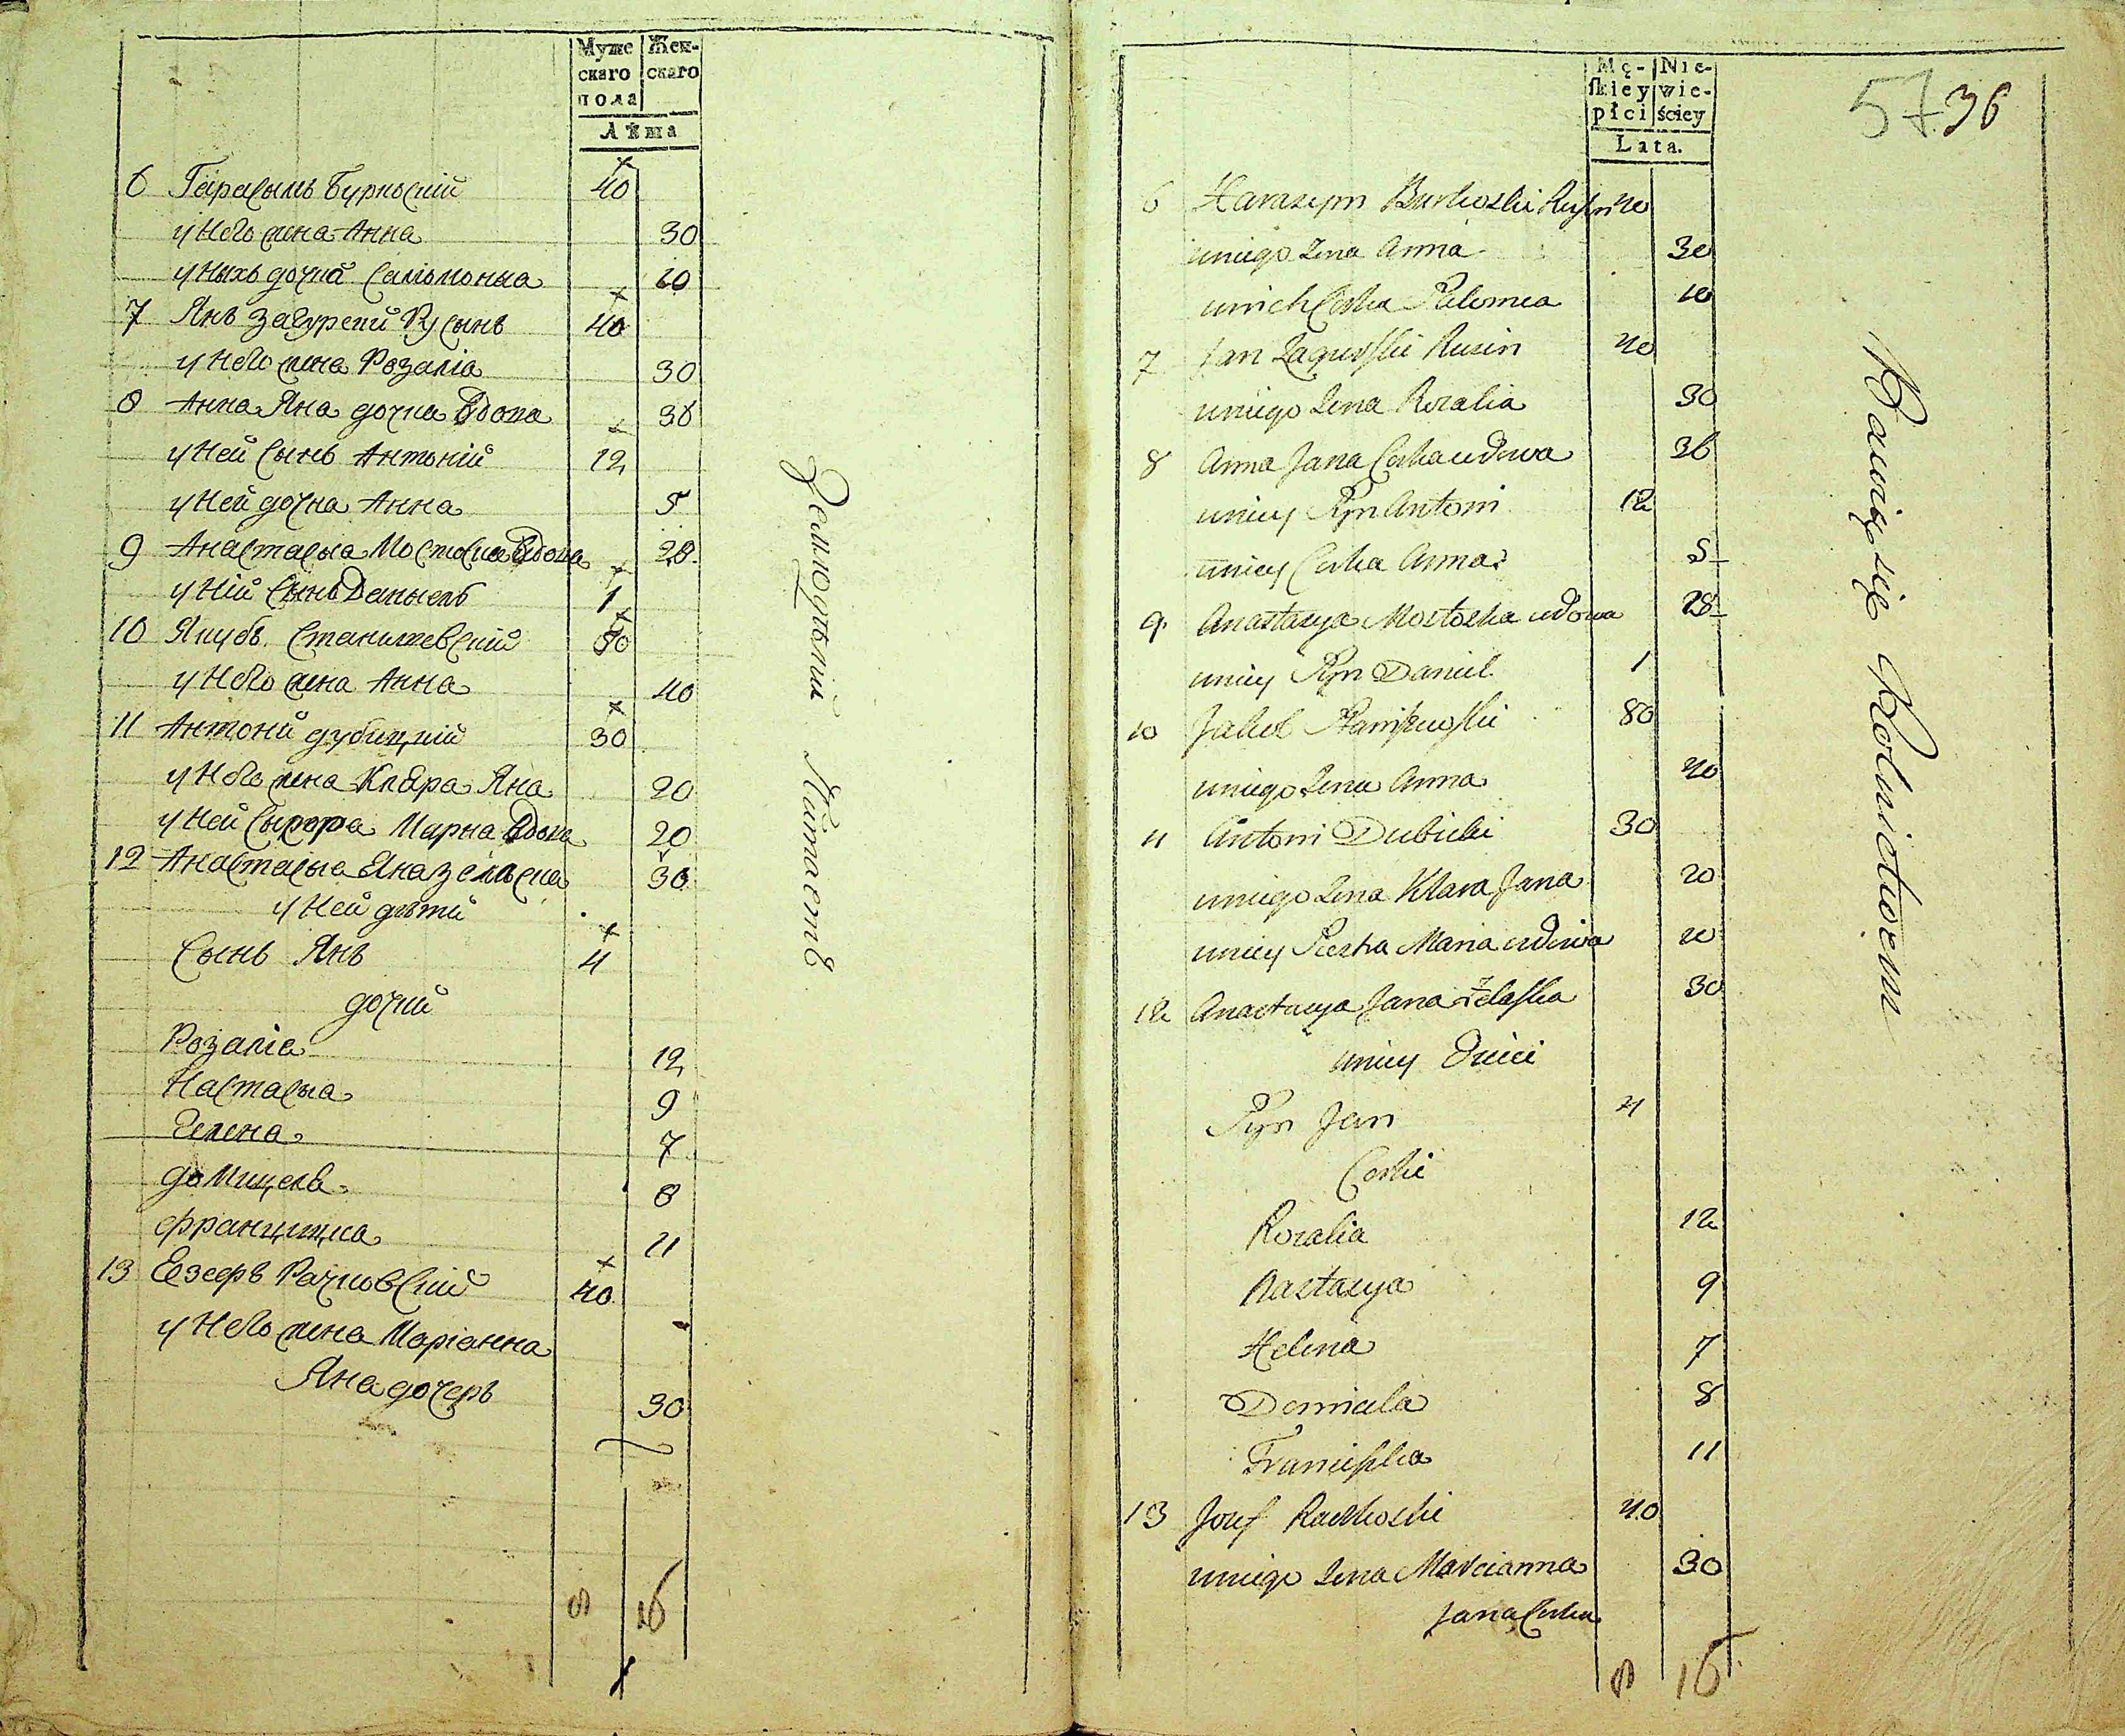 Муже
скаго
пола
Жен-
скаго
Лѣта
6 Гарасымъ Буркоскій 40
у Него жена Анна 30
у Ныхъ дочка Саломонья 10
7 Янъ Загурскій Русынъ 40
у Него жена Розалія 30
8 Анна Яна дочка вдова 36
у Ней Сынъ Антоній 12
у Ней дочка Анна 5
9 Анастасыа Мостоска вдова 28
у Ній Сынъ Даныель 1
10 Якубъ Станишевскій 80
у Него жена Анна 40
11 Антоній дубицкій 30
у Него жена Клара Яна 20
у Ней Сыстра Марна вдова 20
12 Анастасыа Яна зеласка 30
у Ней дѣти
Сынъ Янъ 4
дочкй
Розаліа 12
Настасыа 9
Гелена 7
домицела 8
францишка 11
13 Езефъ Рачковскій 40
у Него жена Маріанна
Яна дочерь 30
8 16
Землюдѣлій Питаетъ
Mę-
skiey
płci
Nie-
wie-
ściey
Lata.
57 36
6 Harasym Burkoski Rusin 40
uniego Zena Anna 30
unich Corka Salomea 10
7 Jan Zagurski Rusin 40
uniego Zena Rozalia 30
8 Anna Jana Corka wdowa 36
uniey Syn Antoni 12
uniey Corka Anna 5
9 Anastazya Mostoska wdowa 28
uniey Syn Daniel 1
10 Jakub Staniszewski 80
uniego Zena Anna 40
11 Antoni Dubicki 30
uniego Zena Klara Jana 20
uniey Siestra Maria wdowa 20
12 Anastazya Jana Żelaska 30
uniey Dzieci
Syn Jan 4
Corki
Rozalia 12
Nastazya 9
Helena 7
Domicela 8
Franciszka 11
13 Jozef Raczkoski 40
uniego Zena Marcianna 30
Jana Corka
8 16
Bawią się Rolnictwem